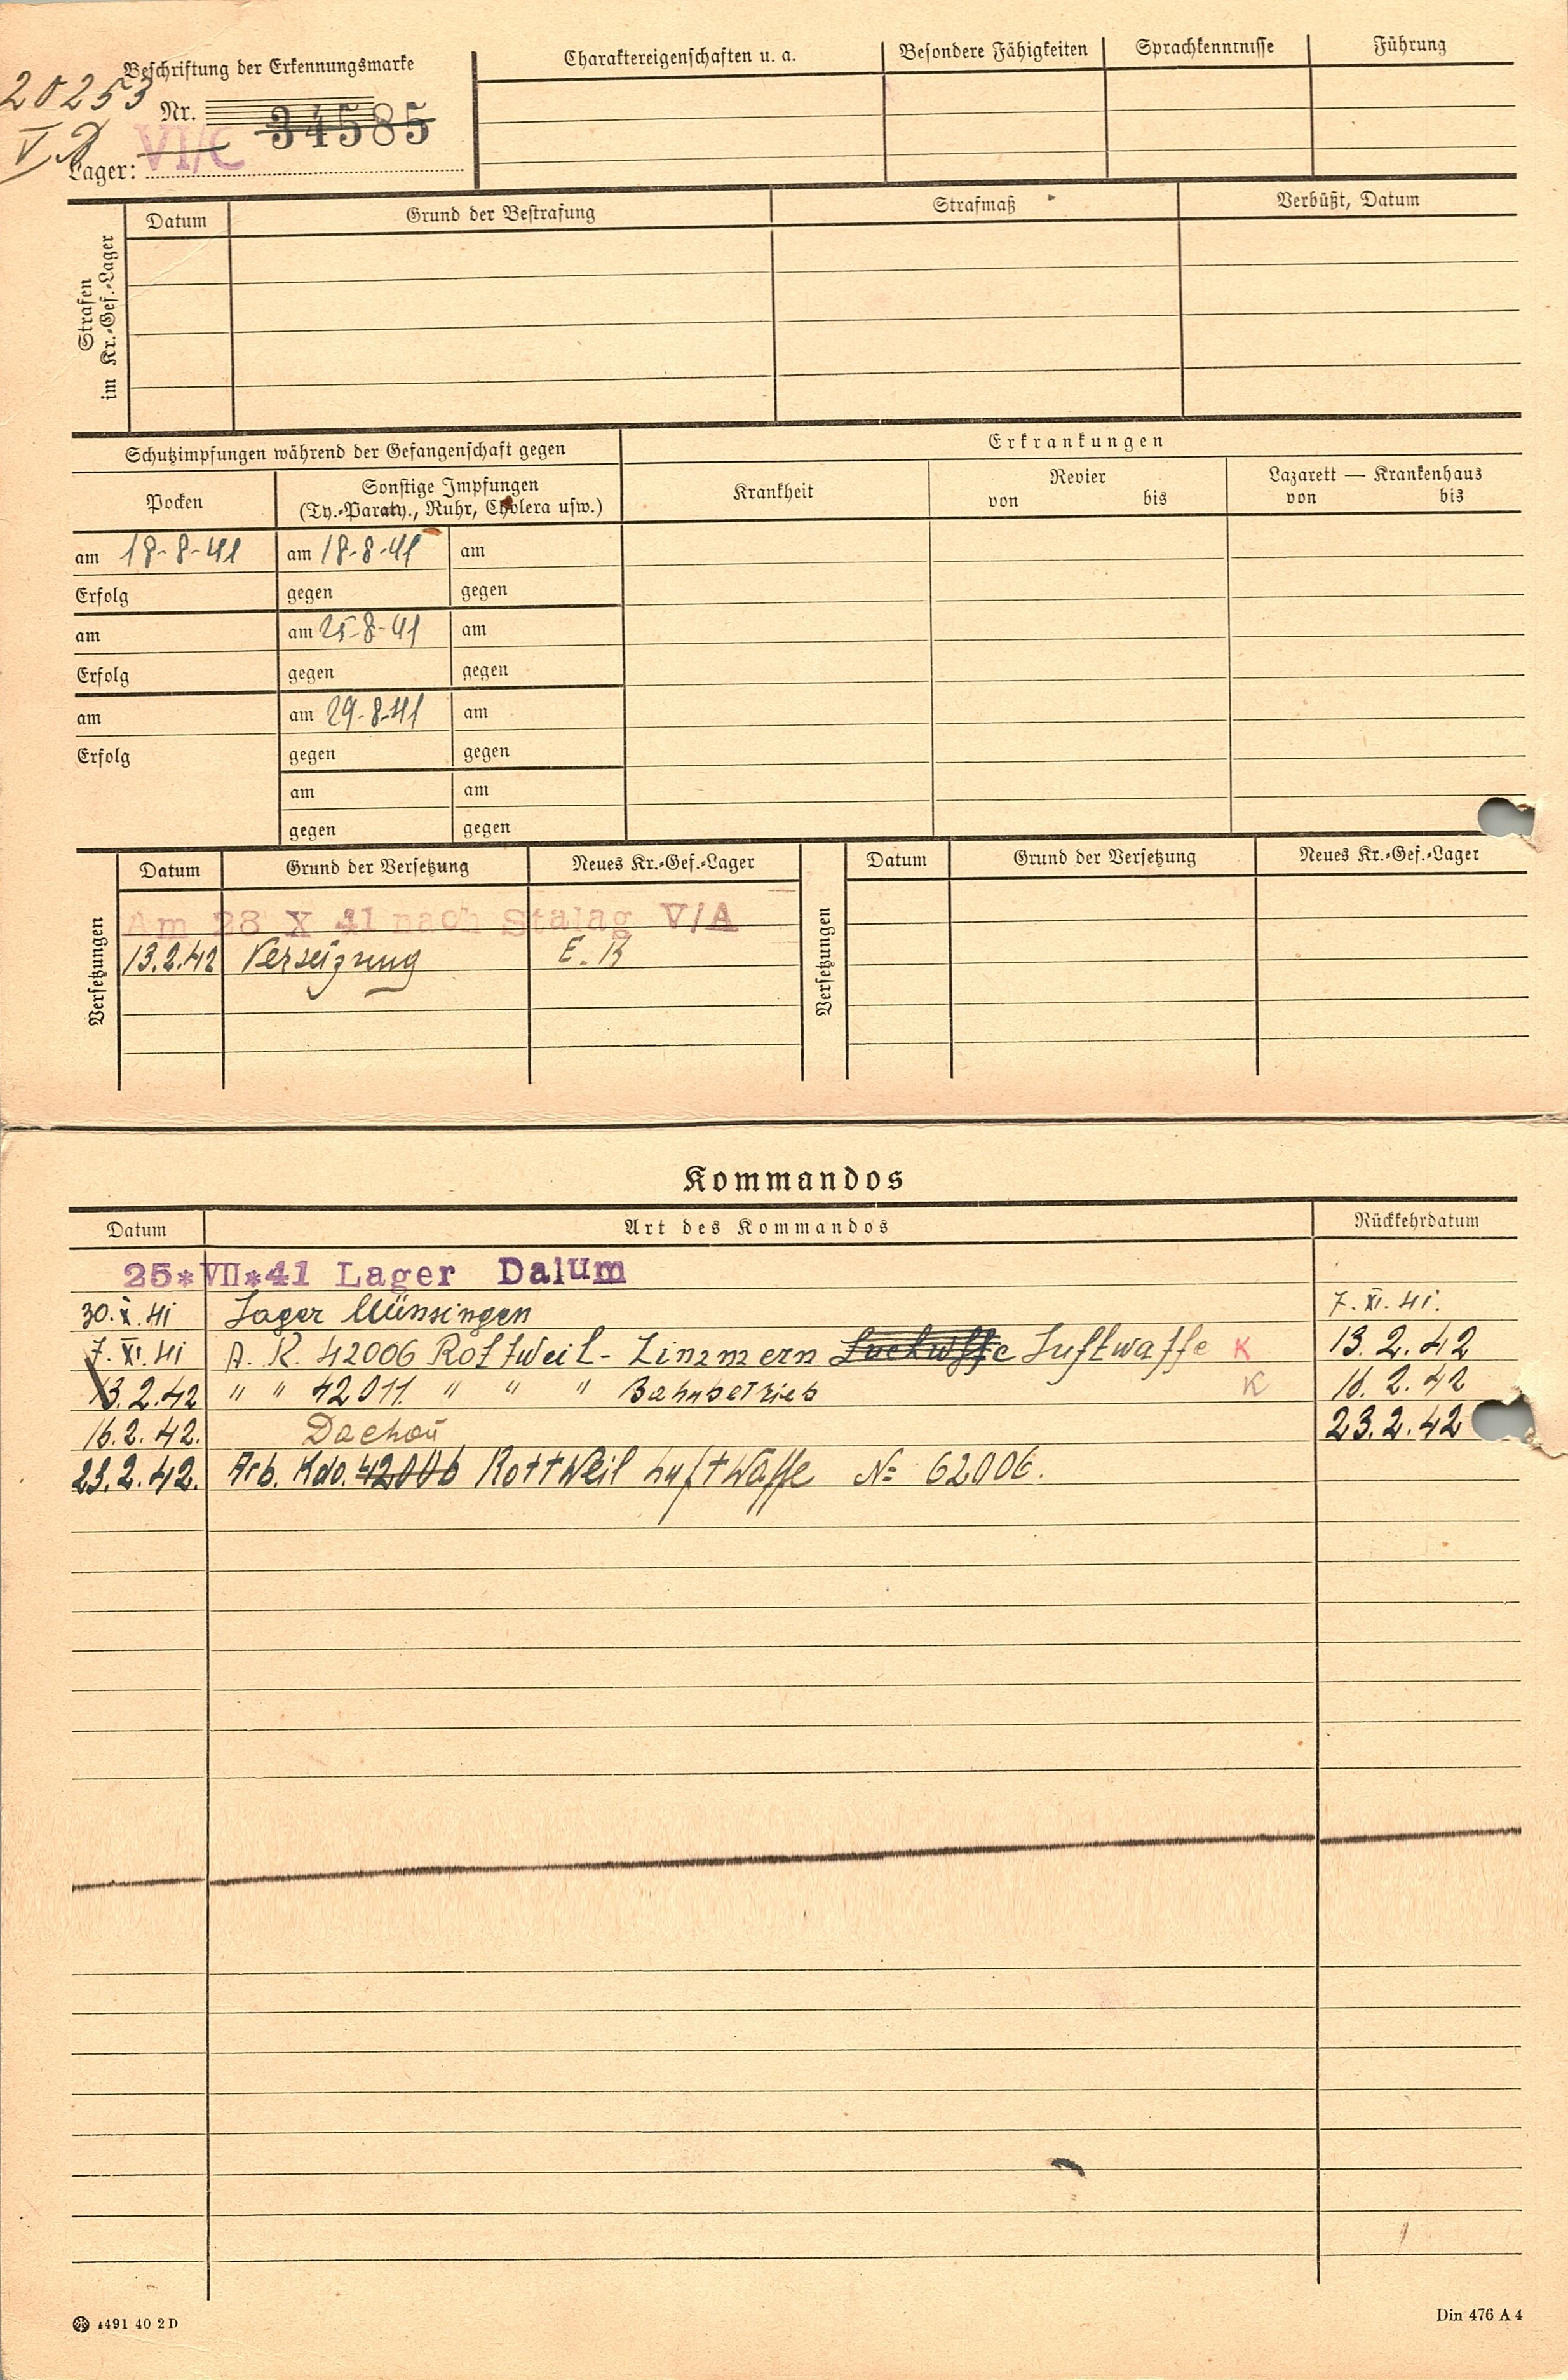 Beschriftung der Erkennungsmarke
20253
Nr. 34585
V D
Lager: VI/C
Charaktereigenschaften u. a. Besondere Fähigkeiten Sprachkenntnisse Führung
Strafen
im Kr.-Gef.-Lager
Datum Grund der Bestrafung Strafmaß Verbüßt, Datum
Schutzimpfungen während der Gefangenschaft gegen
Erkrankungen
Pocken
Sonstige Impfungen
(Ty.-Paraty., Ruhr, Cholera usw.)
Krankheit
Revier
von bis
Lazarett — Krankenhaus
von bis
am 18-8-41 am 18-8-41 am
Erfolg gegen gegen
am am 25-8-41 am
Erfolg gegen gegen
am am 29-8-41 am
Erfolg gegen gegen
am am
gegen gegen
Versetzungen
Datum Grund der Versetzung Neues Kr.-Gef.-Lager
Am 28 X 41 nach Stalag V/A
13.2.42 Verseizung E. K
Versetzungen
Datum Grund der Versetzung Neues Kr.-Gef.-Lager
Kommandos
Datum Art des Kommandos Rückkehrdatum
25*VII*41 Lager Dalum
30.X.41 Lager Münsingen 7.XI.41.
7.XI.41 A. K. 42006 Rottweil-Zinzmern Luftwaffe K 13.2.42
13.2.42 " " 42011 " " " Bahnbetrieb K 16.2.42
16.2.42. Dachau 23.2.42
23.2.42. Arb. Kdo. 42006 Rottweil Luftwaffe № 62006.
1491 40 2 D
Din 476 A 4